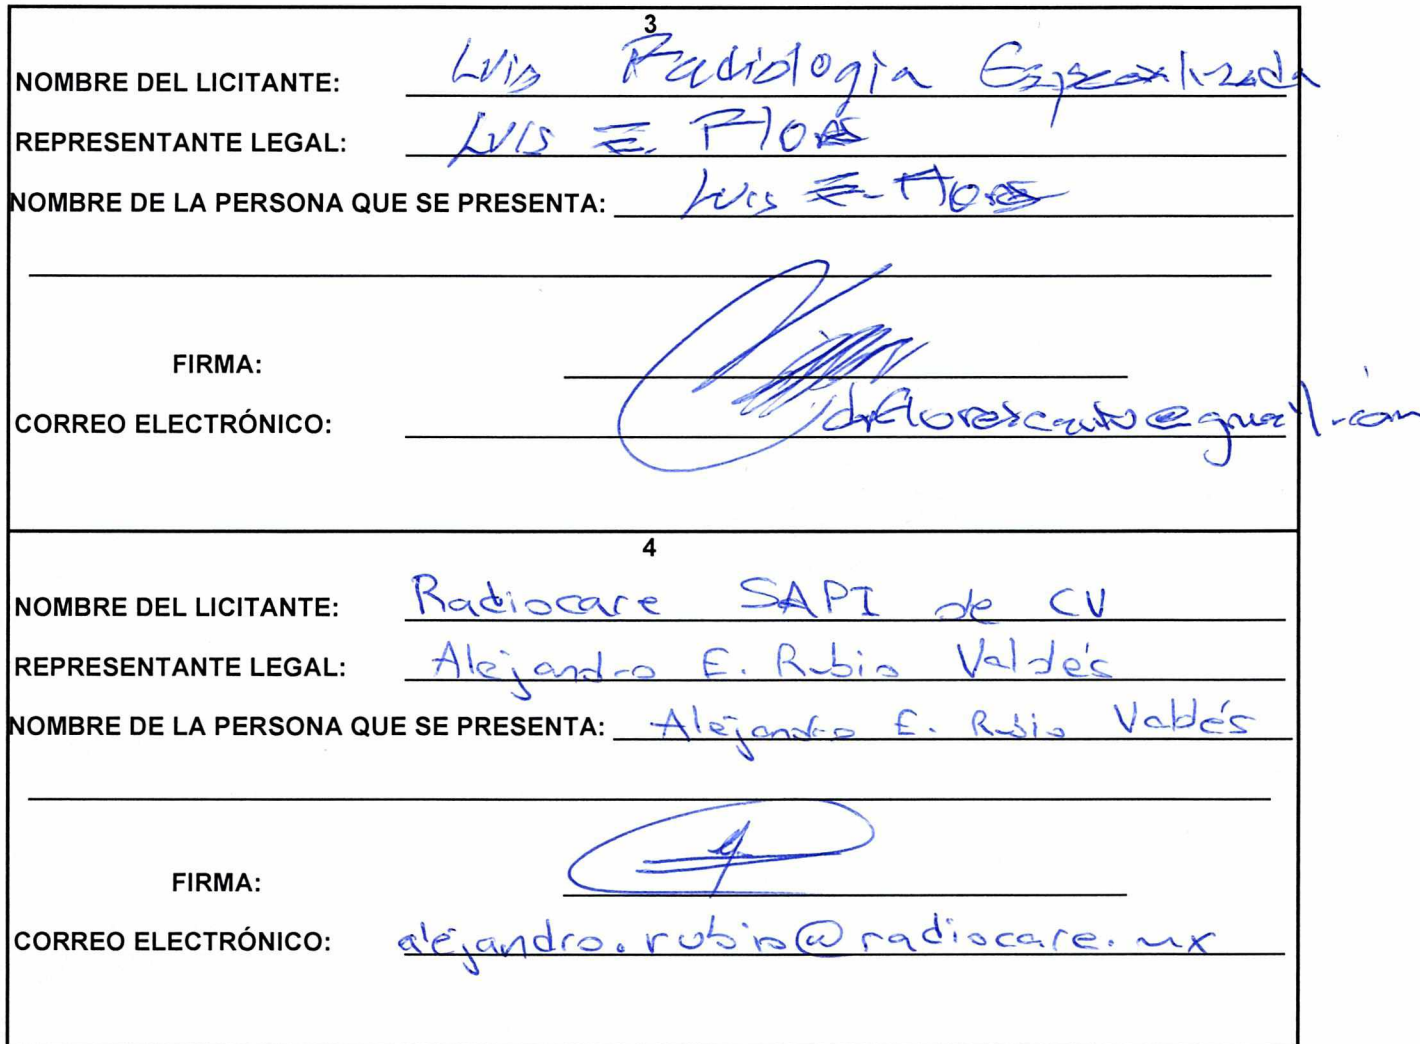 3
NOMBRE DEL LICITANTE: Luis Radiología Especializada
REPRESENTANTE LEGAL: Luis E. Flores
NOMBRE DE LA PERSONA QUE SE PRESENTA: Luis E. Flores
FIRMA:
CORREO ELECTRÓNICO:
4
NOMBRE DEL LICITANTE: Radiocare SAPI de CV
REPRESENTANTE LEGAL: Alejandro E. Rubio Valdés
NOMBRE DE LA PERSONA QUE SE PRESENTA: Alejandro E. Rubio Valdés
FIRMA:
CORREO ELECTRÓNICO: alejandro.rubio@radiocare.mx